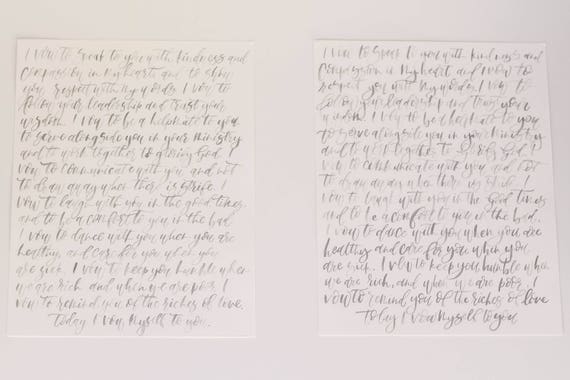 I vow to speak to you with kindness and
compassion in my heart and to show
you respect with my words. I vow to
follow your leadership and trust your
wisdom. I vow to be a helpmate to you
to serve alongside you in your ministry
and to work together to glorify God. I
vow to communicate with you and not
to draw away when there is strife. I
vow to laugh with you in the good times
and to be a comfort to you in the bad.
I vow to dance with you when you are
healthy and care for you when you
are sick. I vow to keep you humble when
we are rich and when we are poor, I
vow to remind you of the riches of love.
Today I vow myself to you.
I vow to speak to you with kindness and
compassion in my heart and I vow to
respect you with my words. I vow to
follow your leadership and trust your
wisdom. I vow to be a helpmate to you
to serve alongside you in your ministry
and to work together to glorify God. I
vow to communicate with you and not
to draw away when there is strife. I
vow to laugh with you in the good times
and to be a comfort to you in the bad.
I vow to dance with you when you are
healthy and care for you when you
are sick. I vow to keep you humble when
we are rich, and when we are poor, I
vow to remind you of the riches of love
Today I vow myself to you